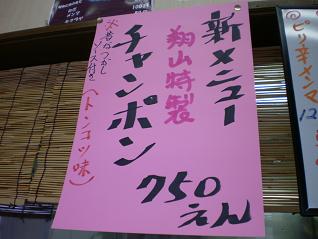 新メニュー
翔山特製
チャンポン
※昔なつかし
ソース付き
(トンコツ味)
750
えん
ピリ辛メンマ